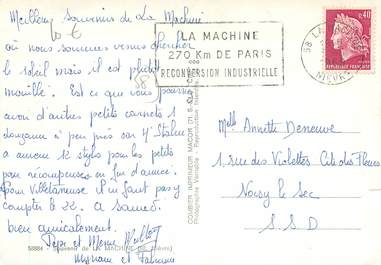 Meilleurs Souvenirs de La Machine
où nous sommes venus chercher
le soleil mais il est plutôt
mouillé. Est ce que vous pourriez
avoir d'autres petits carnets 1
douzaine à peu près
a encore 12 stylos pour les petits
pour récompenses en fin d'année.
Pour Villetaneuse il faut pas y
compter le 22. A samedi
bien amicalement.
Pepe et Meme
Myriam et Fabienne
58884 Souvenir de LA MACHINE (Nièvre)
COMBIER IMPRIMEUR MACON
LA MACHINE
270 Km DE PARIS
RECONVERSION INDUSTRIELLE
58 LA MACHINE
NIEVRE
0,40
REPUBLIQUE FRANÇAISE
Melle Annette Deneuve
1, rue des Violettes Cité des Fleurs
Noisy le Sec
S.S.D